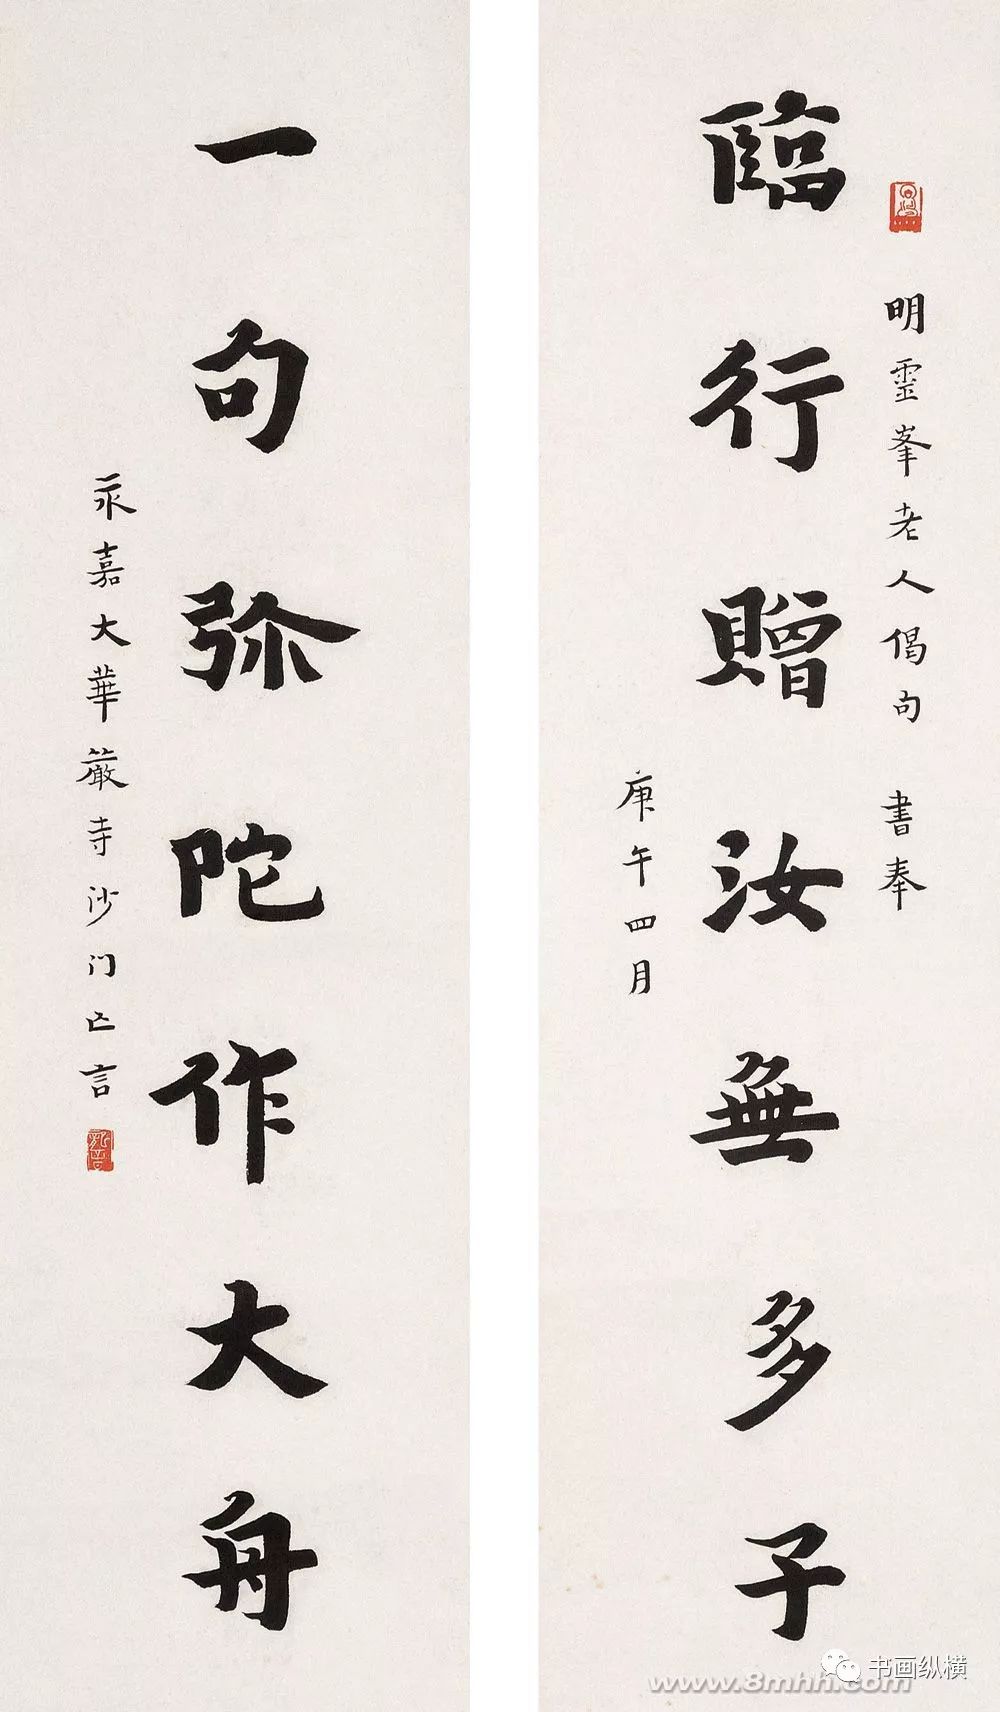 明靈峯老人偈句 書奉
臨行贈汝無多子
庚午四月
一句弥陀作大舟
永嘉大華嚴寺沙门亡言
书画纵横
www.8mhh.com